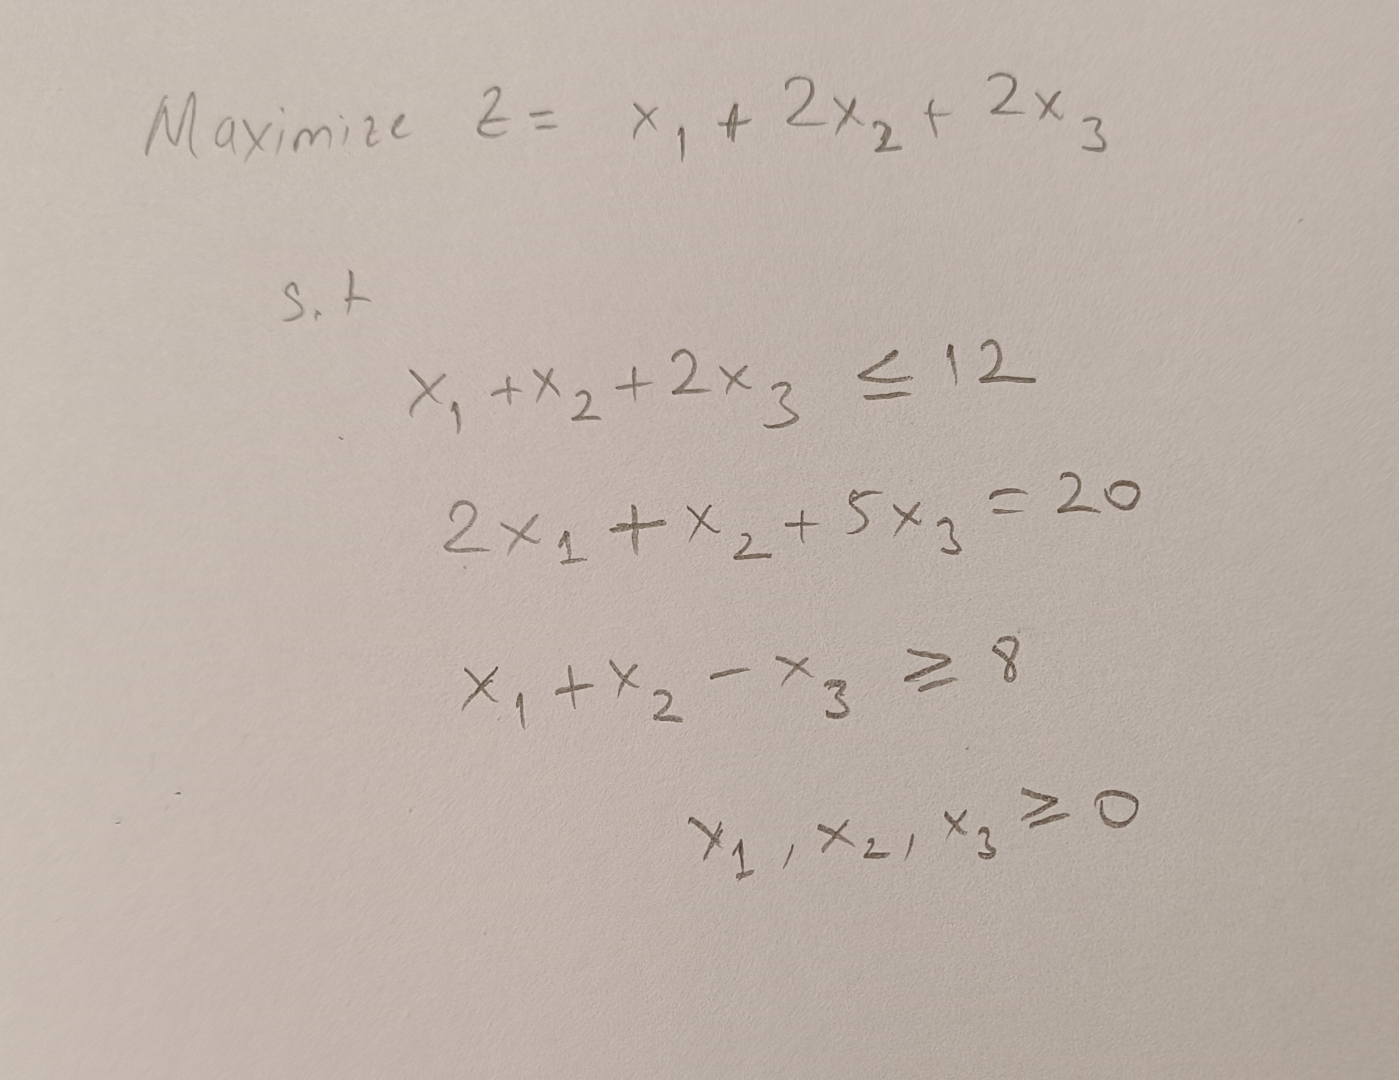 Maximize Z = x₁ + 2x₂ + 2x₃
s.t
x₁ + x₂ + 2x₃ ≤ 12
2x₁ + x₂ + 5x₃ = 20
x₁ + x₂ - x₃ ≥ 8
x₁, x₂, x₃ ≥ 0